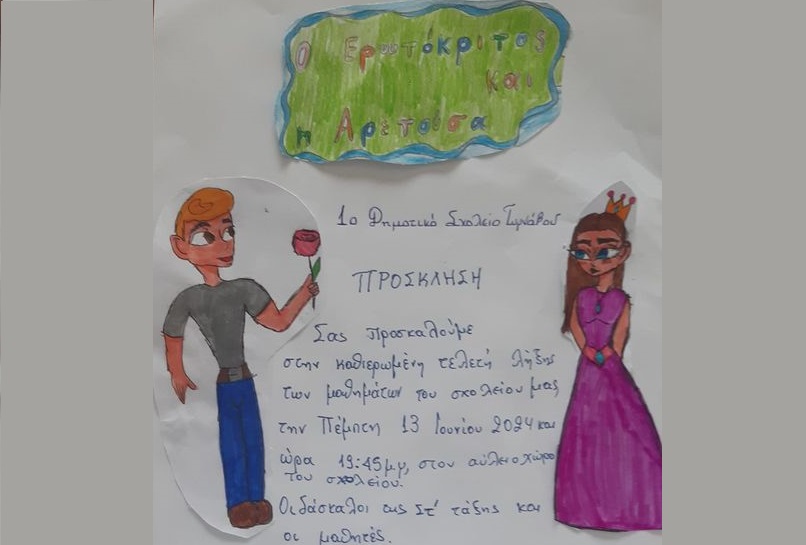 Ο Ερωτόκριτος
και
η Αρετούσα
1ο Δημοτικό Σχολείο Τυρνάβου
ΠΡΟΣΚΛΗΣΗ
Σας προσκαλούμε
στην καθιερωμένη τελετή λήξης
των μαθημάτων του σχολείου μας
την Πέμπτη 13 Ιουνίου 2024 και
ώρα 19:45μμ, στον αύλειο χώρο
του σχολείου.
Οι δάσκαλοι της Στ' τάξης και
οι μαθητές.